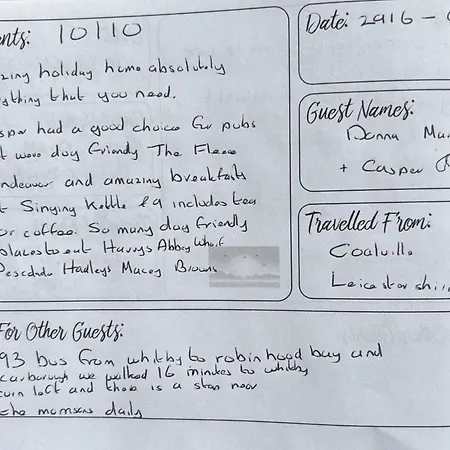 nts: 10/10
Date: 29/6 -
zing holiday home absolutely
ything that you need.
sper had a good choice for pubs
t were dog friendly The Fleece
ndeavour and amazing breakfasts
t Singing Kettle £9 includes tea
or coffee. So many dog friendly
places to eat Harrys Abbey Wharf
Pescado Hadleys Macey Browns
Guest Names:
Donna
+ Casper
Travelled From:
Coalville
Leicestershir
For Other Guests:
93 bus from whitby to robin hood bay and
carborough we walked 16 minutes to whitby
turn left and there is a stop near
the daily